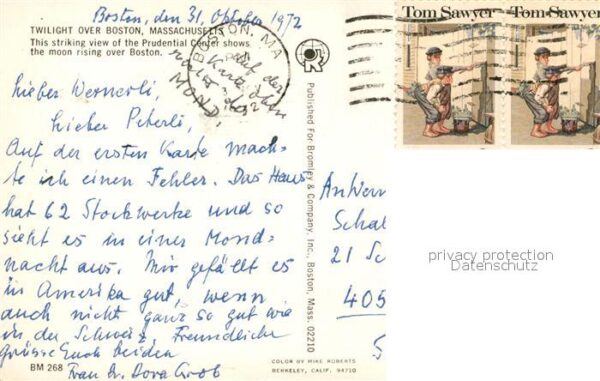 Boston, den 31. Oktober 1972
TWILIGHT OVER BOSTON, MASSACHUSETTS
This striking view of the Prudential Center shows
the moon rising over Boston.
BOSTON, MA
Lieber Wernerli,
Lieber Peterli,
Auf der ersten Karte mach=
te ich einen Fehler. Das Haus
hat 62 Stockwerke und so
sieht es in einer Mond=
nacht aus. Mir gefällt es
in Amerika gut, wenn
auch nicht ganz so gut wie
in der Schweiz. Freundliche
Grüsse Euch beiden
Frau Dr. Dora Grob
BM 268
Published For Bromley & Company, Inc., Boston, Mass. 02210
COLOR BY MIKE ROBERTS
BERKELEY, CALIF. 94710
Tom Sawyer
Tom Sawyer
Schal
21 Sc
405
S
privacy protection
Datenschutz